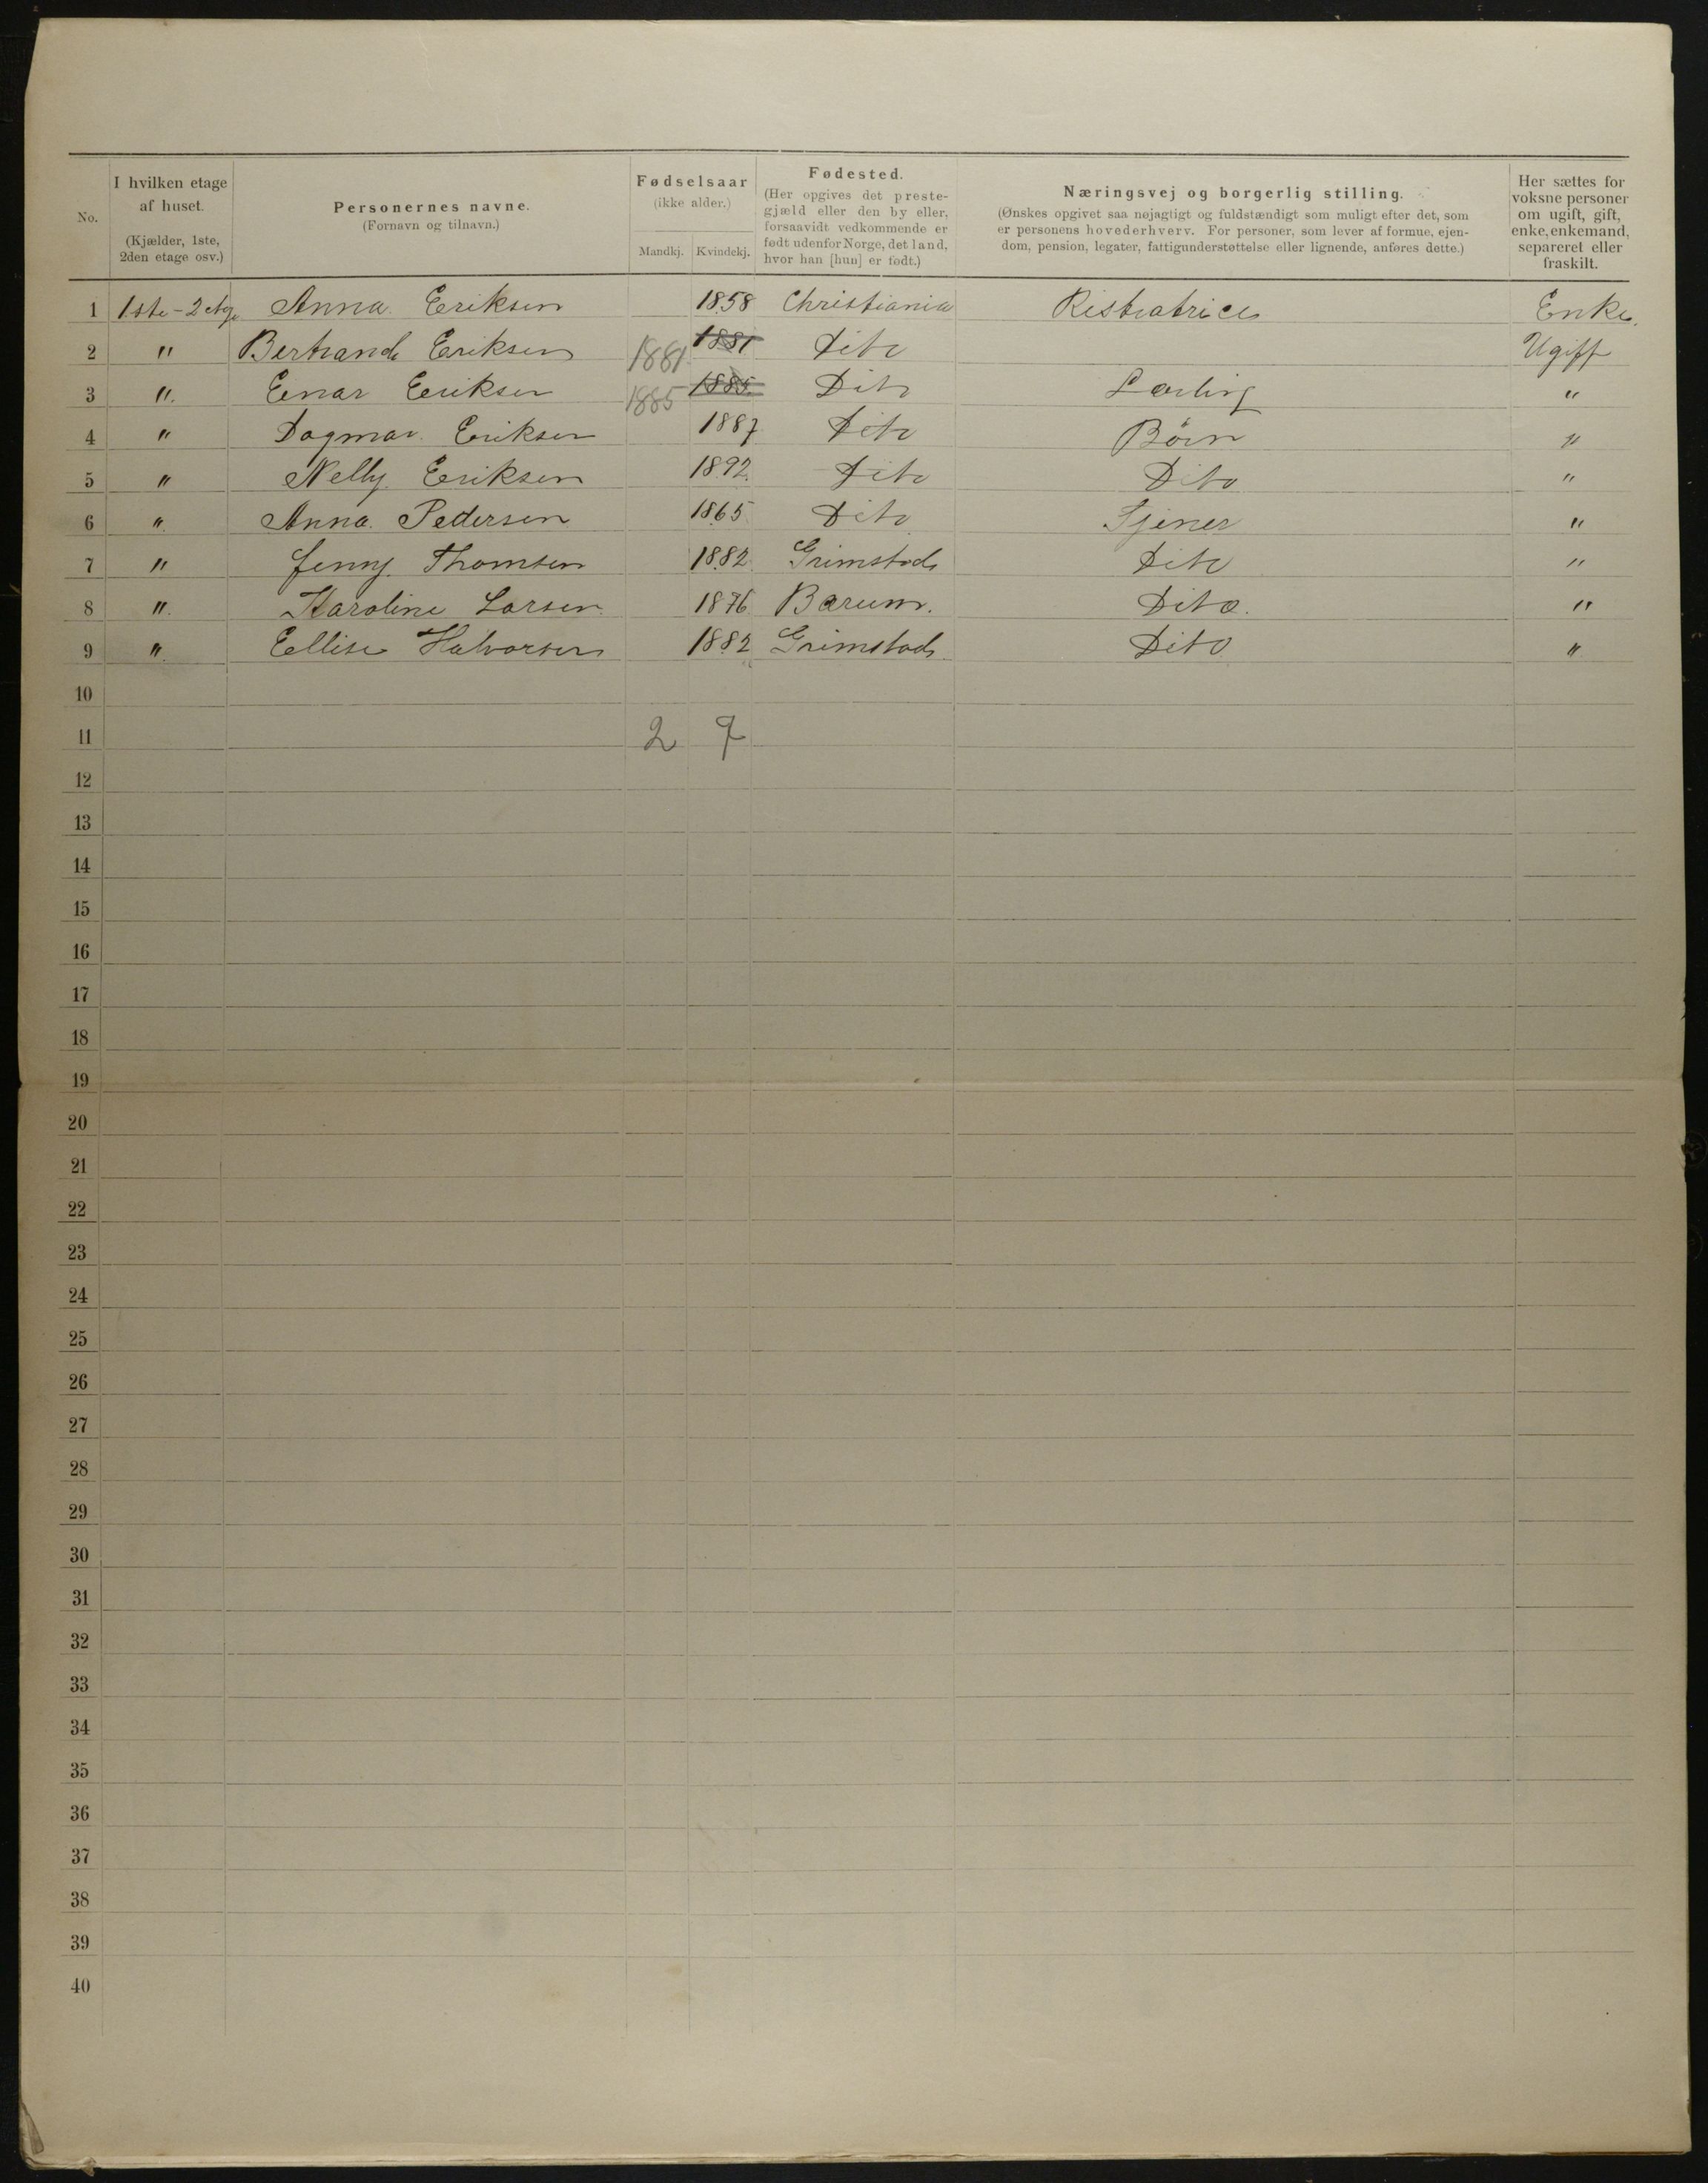 No.
I hvilken etage af huset.
(Kjælder, 1ste, 2den etage osv.)
Personernes navne.
(Fornavn og tilnavn.)
Fødselsaar
(ikke alder.)
Mandkj. Kvindekj.
Fødested.
(Her opgives det preste-
gjæld eller den by eller,
forsaavidt vedkommende er
født udenfor Norge, det land,
hvor han [hun] er født.)
Næringsvej og borgerlig stilling.
(Ønskes opgivet saa nøjagtigt og fuldstændigt som muligt efter det, som
er personens hovederhverv. For personer, som lever af formue, ejen-
dom, pension, legater, fattigunderstøttelse eller lignende, anføres dette.)
Her sættes for
voksne personer
om ugift, gift,
enke, enkemand,
separeret eller
fraskilt.
1 1ste - 2 etg. Anna Eriksen 1858 Christiania Ristratrice Enke.
2 " Bertrand Eriksen 1881 1881 Dito Ugift
3 " Einar Eriksen 1885 1885 Dito Lærling "
4 " Dagmar Eriksen 1887 Dito Børn "
5 " Nelly Eriksen 1892 Dito Dito "
6 " Anna Pedersen 1865 Dito Tjener "
7 " Jenny Thomsen 1882 Grimstad Dito "
8 " Karoline Larsen 1876 Bærum. Dito. "
9 " Ellise Halvorsen 1882 Grimstad Dito "
10
11 2 7
12
13
14
15
16
17
18
19
20
21
22
23
24
25
26
27
28
29
30
31
32
33
34
35
36
37
38
39
40